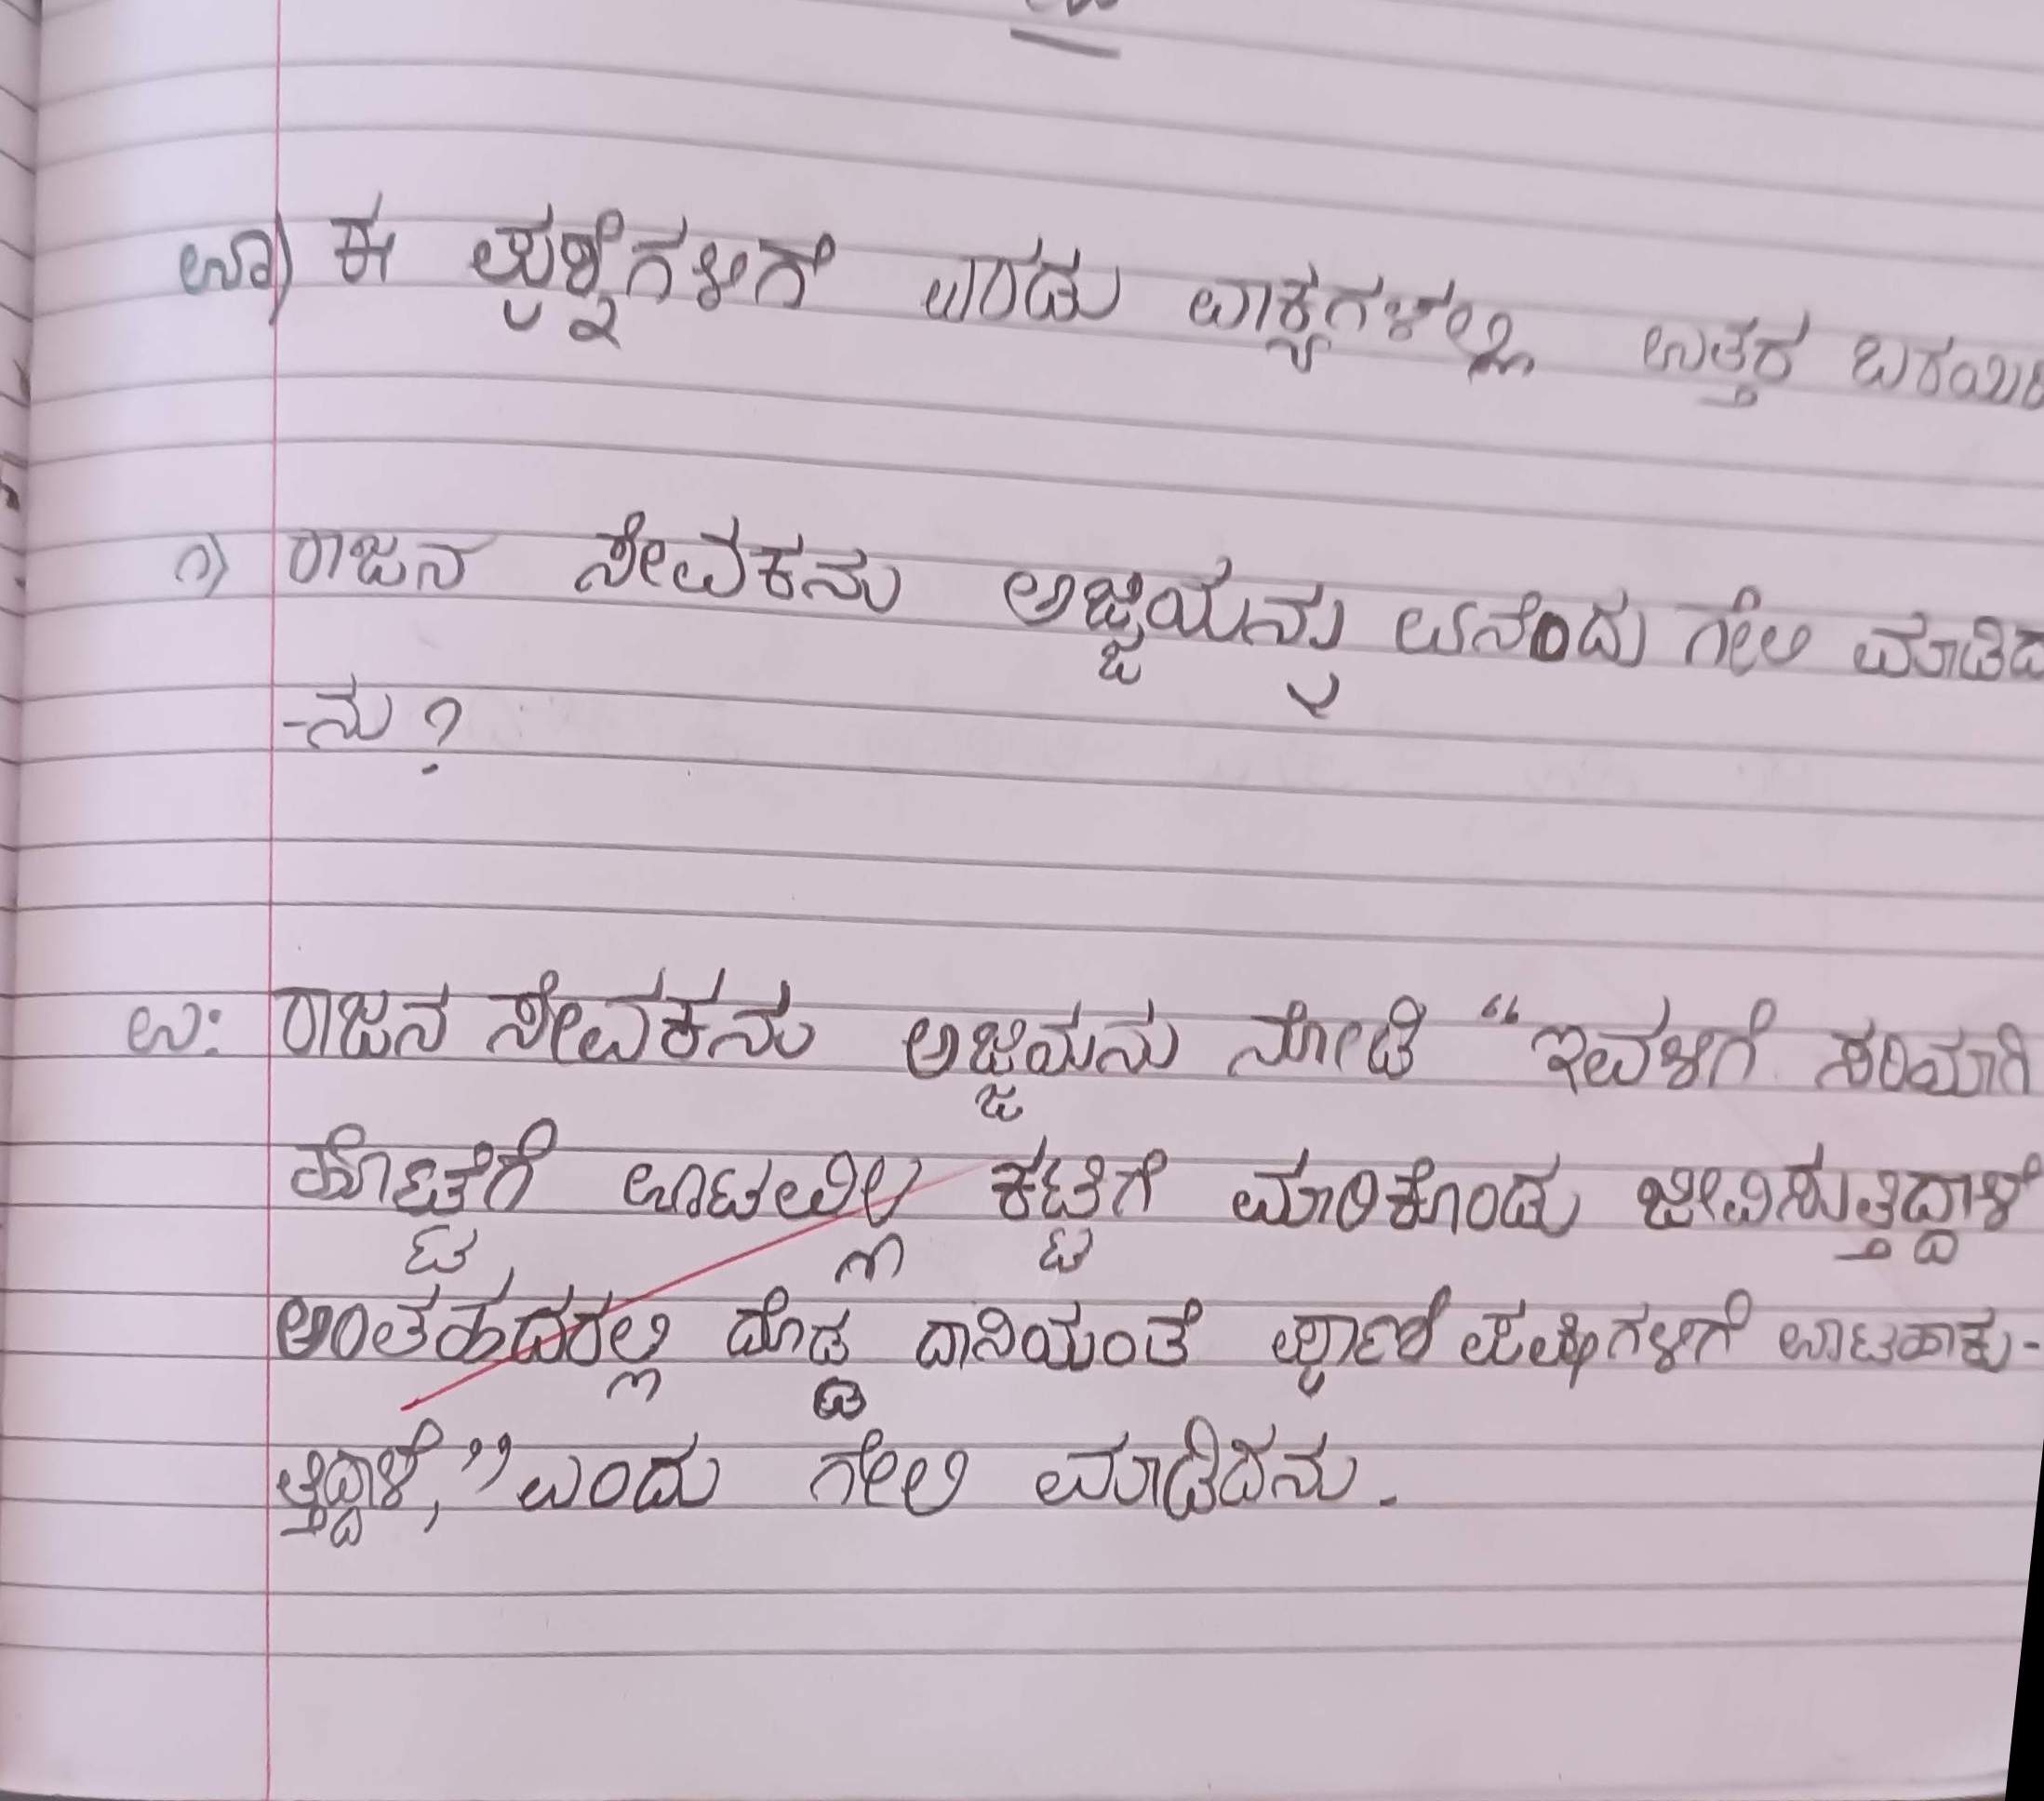 ಊ) ಈ ಪ್ರಶ್ನೆಗಳಿಗೆ ಎರಡು ವಾಕ್ಯಗಳಲ್ಲಿ ಉತ್ತರ ಬರೆಯಿರಿ
೧) ರಾಜನ ಸೇವಕನು ಅಜ್ಜಿಯನ್ನು ಏನೆಂದು ಗೇಲಿ ಮಾಡಿದ
-ನು ?
ಉ: ರಾಜನ ಸೇವಕನು ಅಜ್ಜಿಯನು ನೋಡಿ “ಇವಳಿಗೆ ಸರಿಯಾಗಿ
ಹೊಟ್ಟೆಗೆ ಊಟವಿಲ್ಲ ಕಟ್ಟಿಗೆ ಮಾರಿಕೊಂಡು ಜೀವಿಸುತ್ತಿದ್ದಾಳೆ
ಅಂತಹದರಲ್ಲಿ ದೊಡ್ಡ ದಾನಿಯಂತೆ ಪ್ರಾಣಿ ಪಕ್ಷಿಗಳಿಗೆ ಊಟಹಾಕು-
ತ್ತಿದ್ದಾಳೆ,” ಎಂದು ಗೇಲಿ ಮಾಡಿದನು.